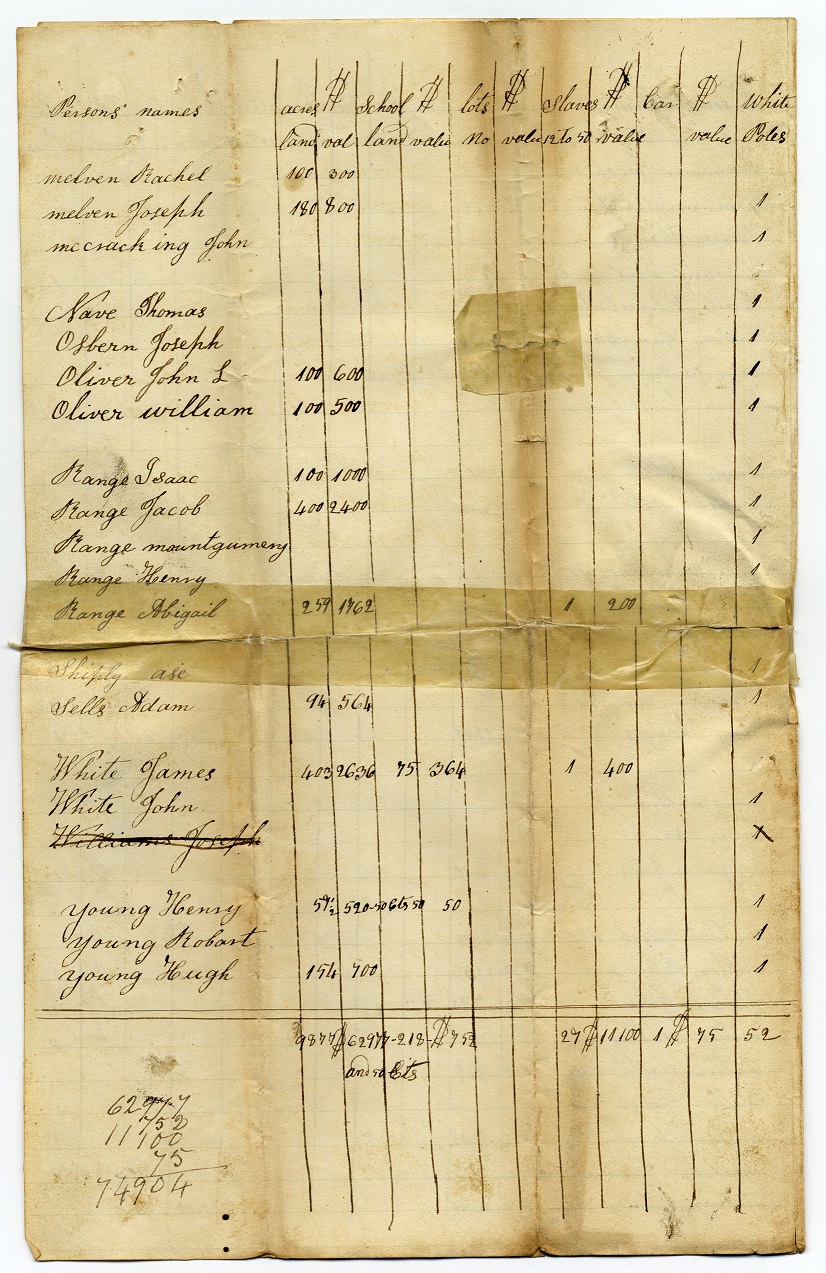 Persons names acres $ School $ lots $ Slaves $ Car $ White
land val land value No value 12 to 50 value value Poles
melven Rachel 100 300
melven Joseph 180 800 1
mccrack ing John 1
Nave Thomas 1
Osbern Joseph 1
Oliver John L 100 600 1
Oliver william 100 500 1
Range Isaac 100 1000 1
Range Jacob 400 2400 1
Range mountgumery 1
Range Henry 1
Range Abigail 259 1762 1 200
Shiply ase 1
Sells Adam 94 564 1
White James 403 2636 75 364 1 400
White John 1
Williams Joseph 1
young Henry 590-50 Cts 50 50 1
young Robart 1
young Hugh 154 700 1
9877 $ 62977-218-$ 752 27 $ 11100 1 $ 75 52
and 50 Cts
62977
752
11100
75
74904